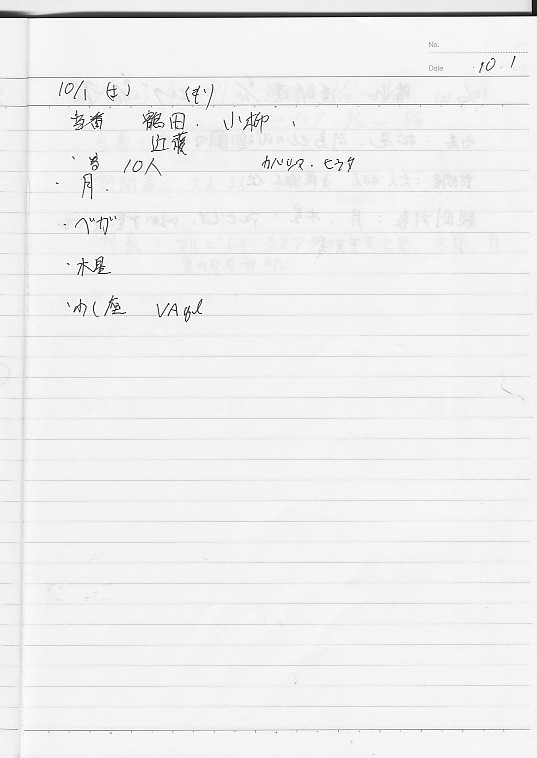 No.
Date 10.1
10/1 (土) くもり
当番 鶴田. 小柳 、
近藤
10人 カバシマ. ヒラタ
・月.
・ベガ
・木星
・わし座 V Aql